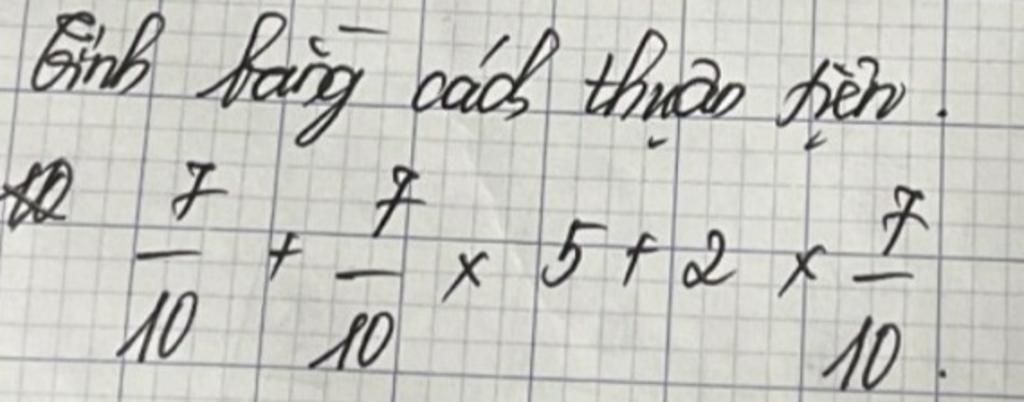 Tính bằng cách thuận tiện.
7/10 + 7/10 × 5 + 2 × 7/10.